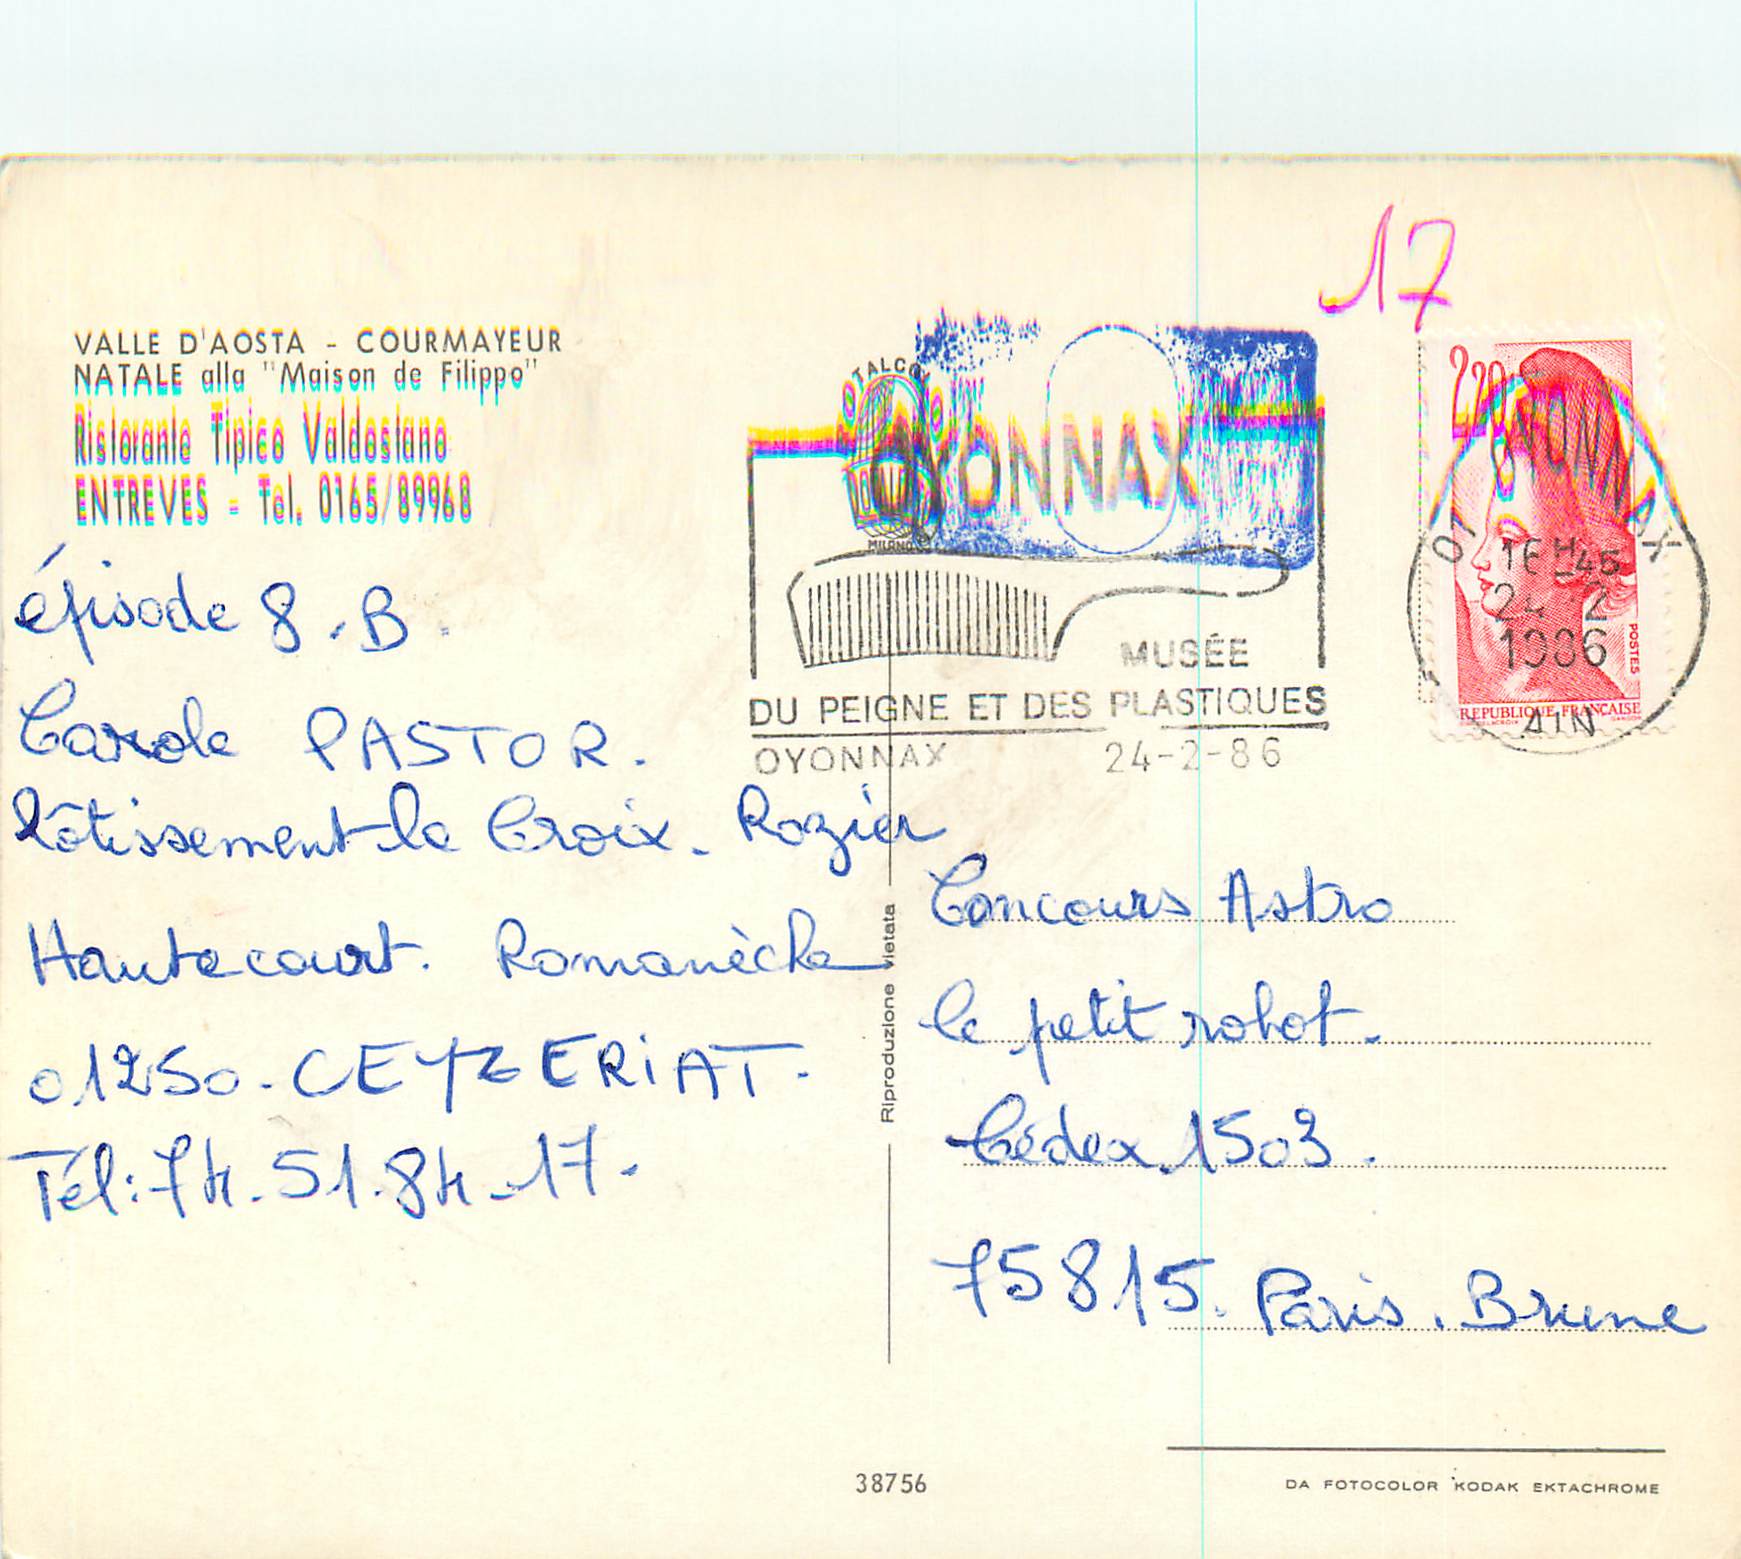 VALLE D'AOSTA - COURMAYEUR
NATALE alla "Maison de Filippo"
Ristorante Tipico Valdostano
ENTREVES - Tel. 0165/89968
épisode 8.B.
Carole PASTOR.
lôtissement la Croix. Rozier
Hautecourt. Romanèche
01250. CEYZERIAT.
Tél: 74.51.84.17.
17
ITALCO
MILANO
OYONNAX
MUSÉE
DU PEIGNE ET DES PLASTIQUES
OYONNAX 24-2-86
2,20
01 OYONNAX
16H45
24-2
1986
AIN
POSTES
REPUBLIQUE FRANÇAISE
Riproduzione vietata
Concours Astro
le petit robot.
Cédex 1503.
75815. Paris. Brune
38756
DA FOTOCOLOR KODAK EKTACHROME